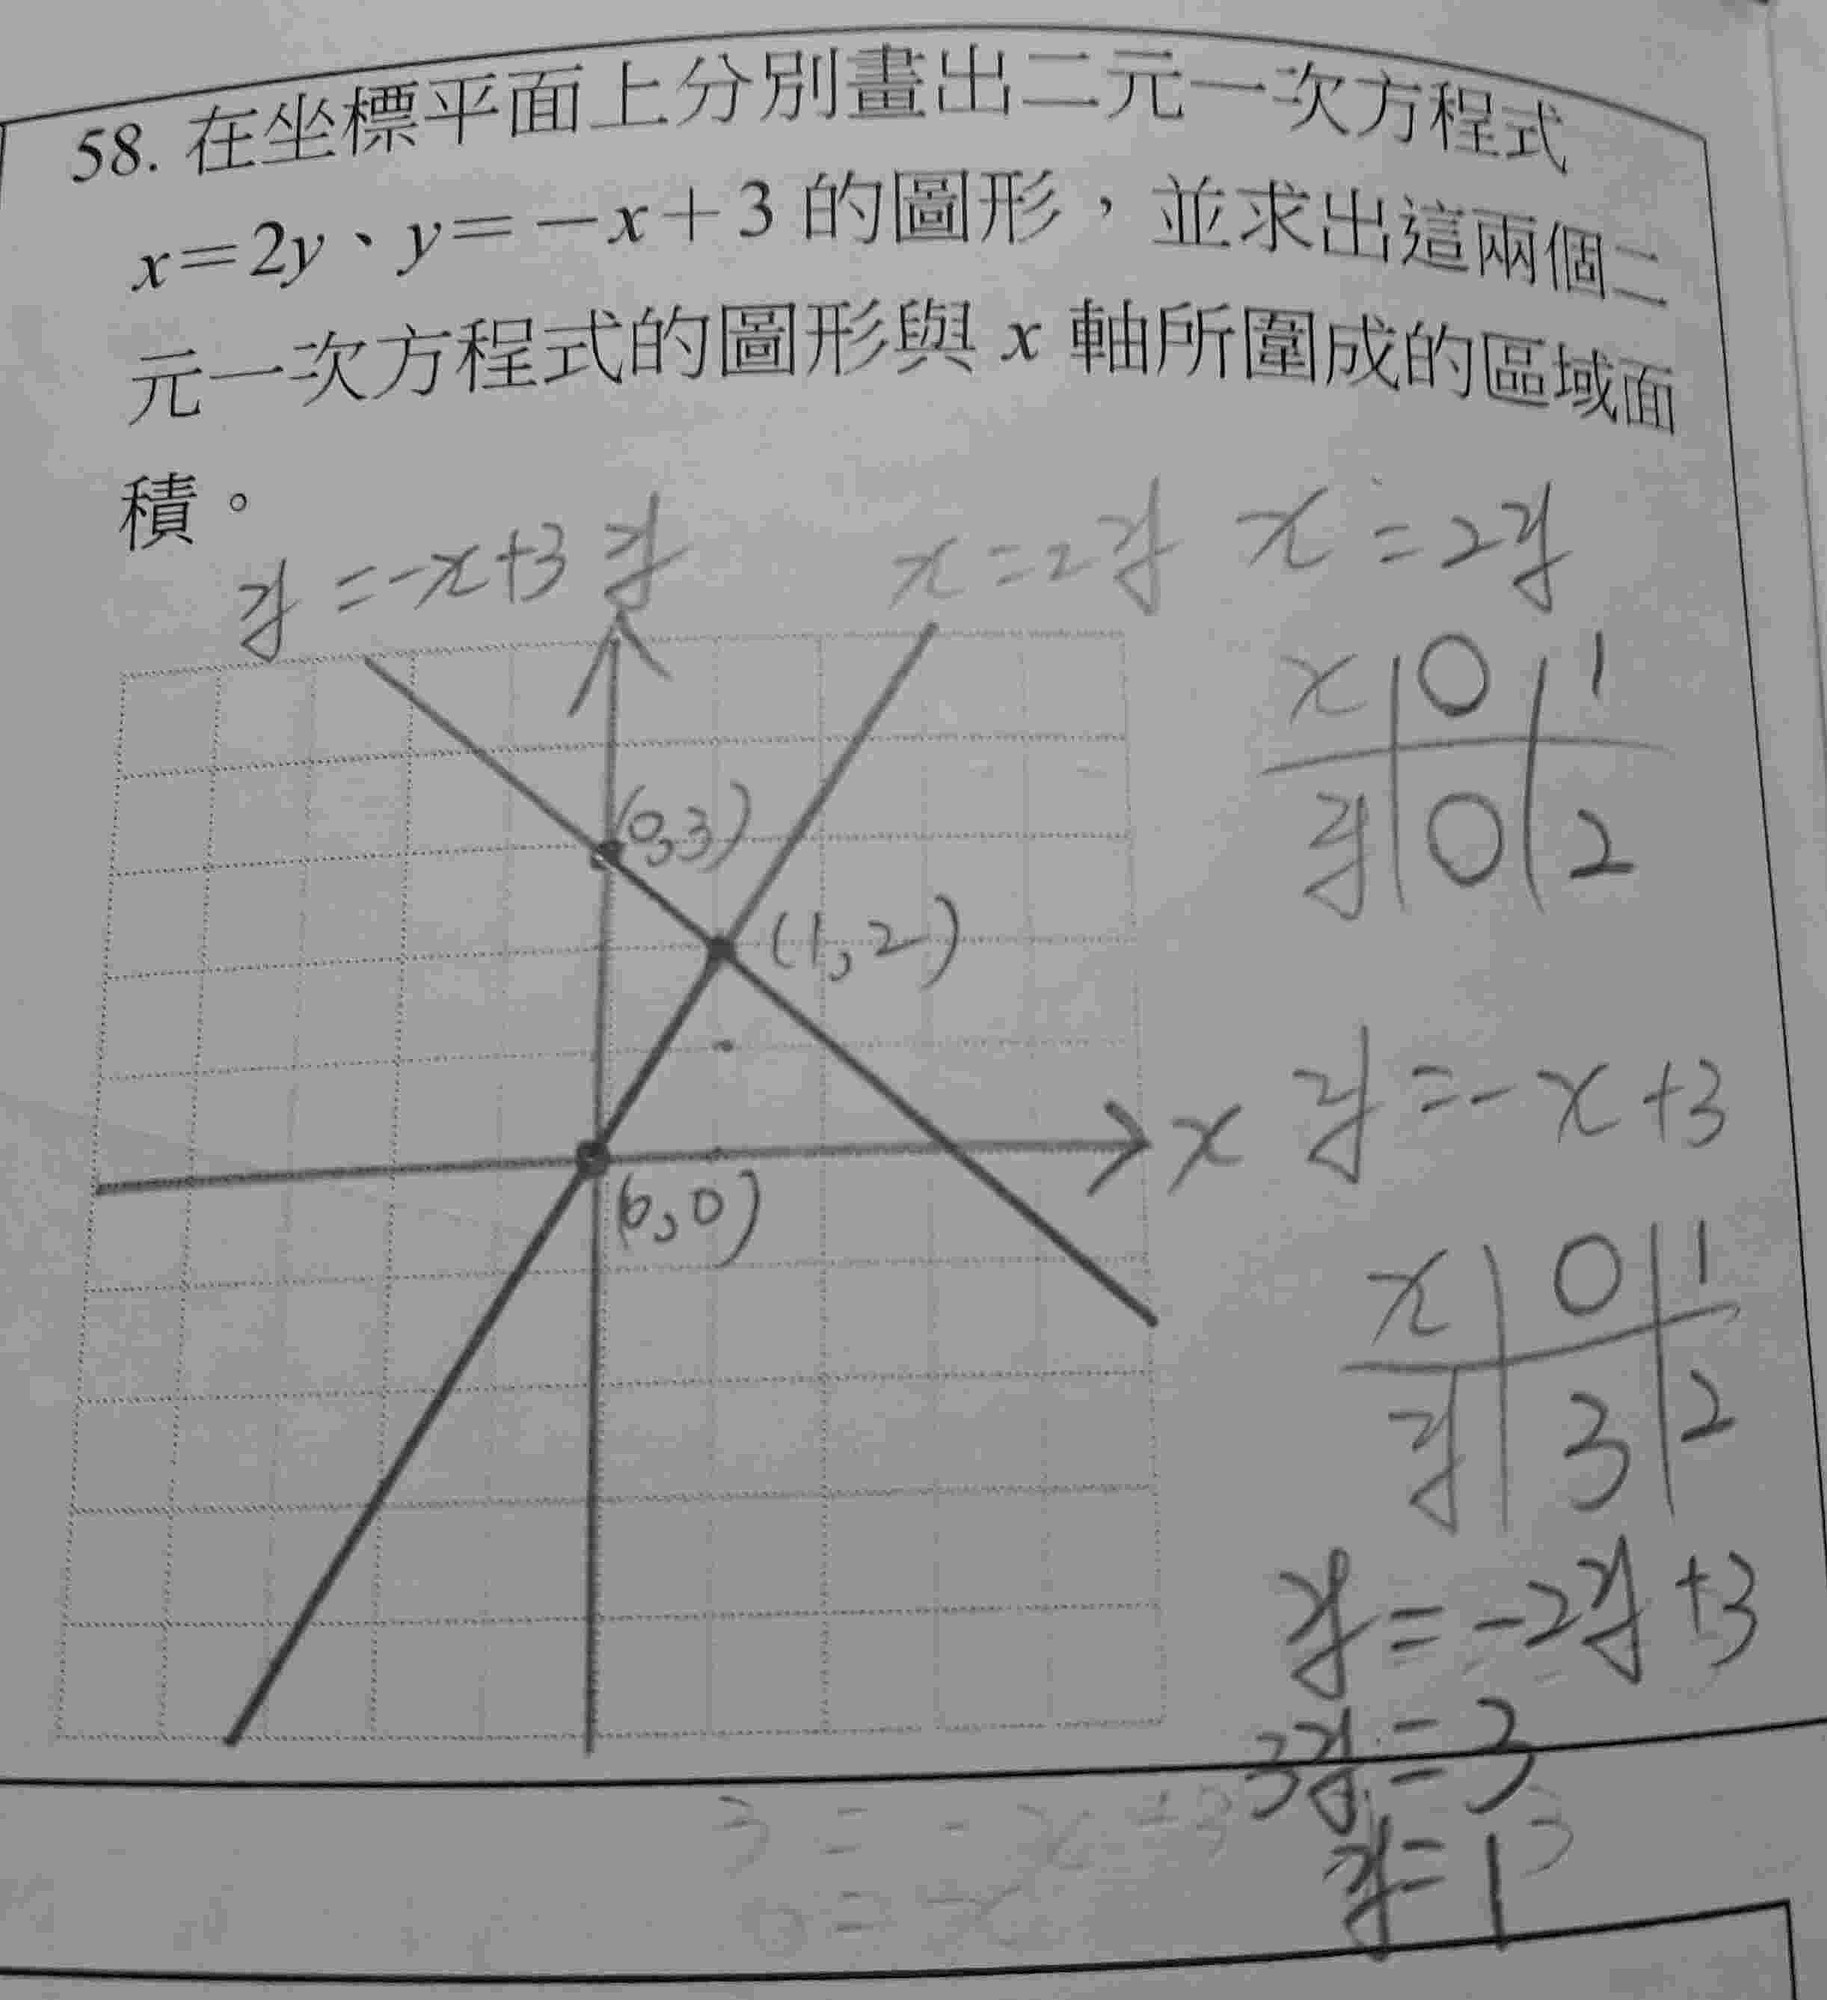 58. 在坐標平面上分別畫出二元一次方程式
x＝2y、y＝－x＋3 的圖形，並求出這兩個二
元一次方程式的圖形與 x 軸所圍成的區域面
積。
y = -x+3
y
x = 2y
x = 2y
x 0 1
y 0 2
(0,3)
(1,2)
x
(0,0)
y = -x +3
x 0 1
y 3 2
y = -2y +3
3y = 3
y = 1
3 = -x +3
0 = -x